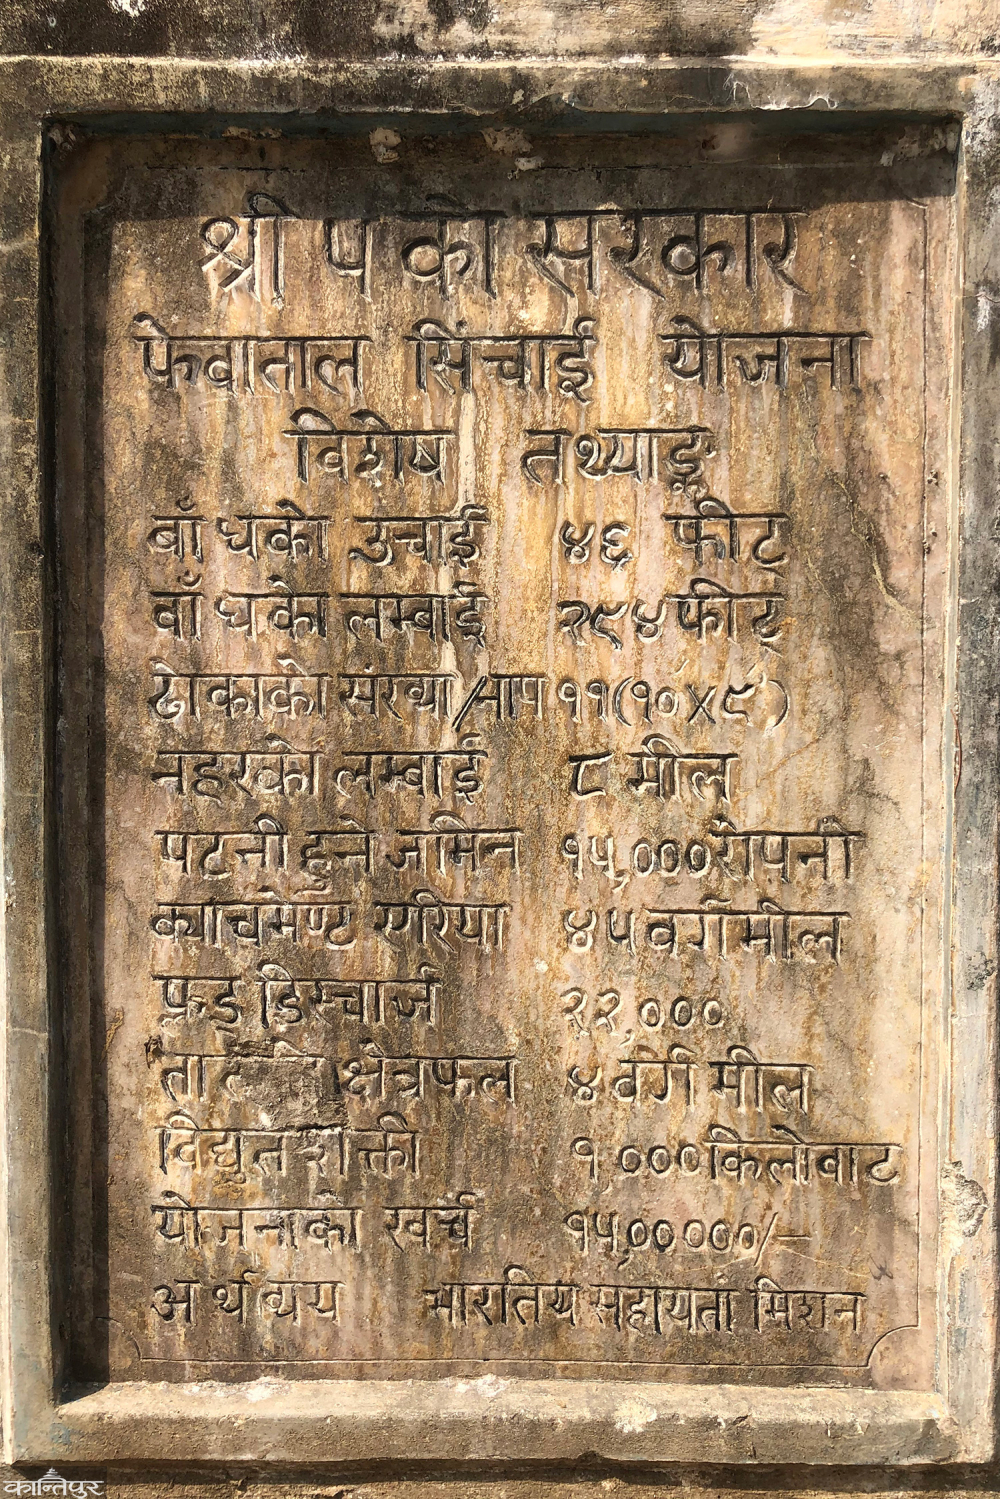 श्री ५ को सरकार
फेवाताल सिंचाई योजना
विशेष तथ्याङ्क
बाँधको उचाई ४६ फीट
बाँधको लम्बाई २९४ फीट
ढोकाको संख्या/माप ११(१०×९')
नहरको लम्बाई ८ मील
पटनी हुने जमिन १५,००० रोपनी
क्याचमेण्ट एरिया ४५ वर्ग मील
फ्लड डिस्चार्ज २२,०००
क्षेत्रफल ४ वर्ग मील
विद्युत शक्ती १,००० किलोवाट
योजनाको खर्च १५,०००००० /-
अर्थ व्यय भारतिय सहायता मिशन
कान्तिपुर